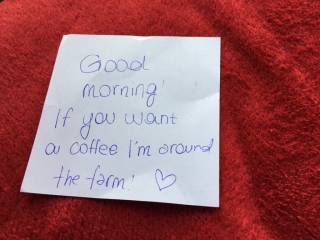 Good
morning!
If you want
a coffee I'm around
the farm! ♡